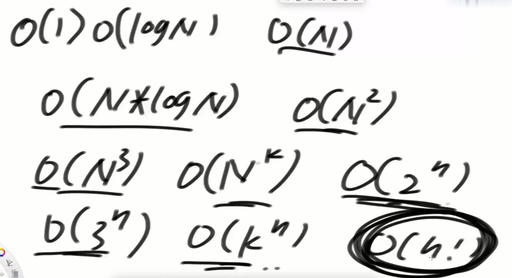 O(1) O(logN) O(N)
O(N*logN) O(N²)
O(N³) O(Nᵏ) O(2ⁿ)
O(3ⁿ) O(kⁿ) .. O(n!)